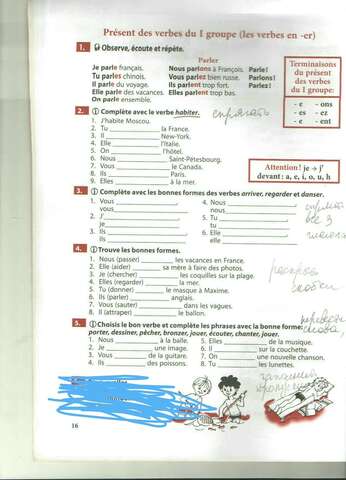 Présent des verbes du I groupe (les verbes en -er)
1. Observe, écoute et répète.
Parler
Je parle français. Nous parlons à François. Parle!
Tu parles chinois. Vous parlez bien russe. Parlons!
Il parle du voyage. Ils parlent trop fort. Parlez!
Elle parle des vacances. Elles parlent trop bas.
On parle ensemble.
Terminaisons
du présent
des verbes
du I groupe:
- e - ons
- es - ez
- e - ent
2. Complète avec le verbe habiter. спрягать
1. J'habite Moscou.
2. Tu ________ la France.
3. Il ________ New-York.
4. Elle ________ l'Italie.
5. On ________ l'hôtel.
6. Nous ________ Saint-Pétesbourg.
7. Vous ________ le Canada.
8. Ils ________ Paris.
9. Elles ________ à la mer.
Attention! je → j'
devant: a, e, i, o, u, h
3. Complète avec les bonnes formes des verbes arriver, regarder et danser.
1. Vous ________, ________, 4. Nous ________,
vous ________ nous ________
2. J' ________, 5. Tu ________,
je ________ tu ________
3. Ils ________, ________, 6. Elle ________,
ils ________ elle ________
все 3
4. Trouve les bonnes formes.
1. Nous (passer) ________ les vacances en France.
2. Elle (aider) ________ sa mère à faire des photos.
3. Je (chercher) ________ les coquilles sur la plage.
4. Elles (regarder) ________ la mer.
5. Tu (donner) ________ le masque à Maxime.
6. Ils (parler) ________ anglais.
7. Vous (sauter) ________ dans les vagues.
8. Il (attraper) ________ le ballon.
раскрой
скобки
5. Choisis le bon verbe et complète les phrases avec la bonne forme:
porter, dessiner, pêcher, bronzer, jouer, écouter, chanter, jouer.
1. Nous ________ à la balle. 5. Elles ________ de la musique.
2. Je ________ une image. 6. Il ________ sur la couchette.
3. Vous ________ de la guitare. 7. On ________ une nouvelle chanson.
4. Ils ________ des poissons. 8. Tu ________ les lunettes.
16